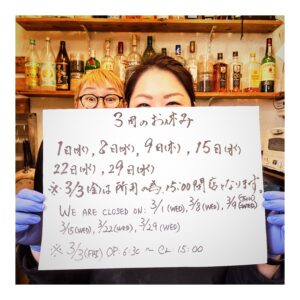 3月のお休み
1日(水), 8日(水), 9日(木), 15日(水)
22日(水), 29日(水)
※ 3/3(金)は所用の為, 15:00閉店となります。
WE ARE CLOSED ON: 3/1 (WED), 3/8 (WED), 3/9 (THU)
3/15 (WED), 3/22 (WED), 3/29 (WED)
※ 3/3 (FRI) OP: 6:30 ~ CL 15:00